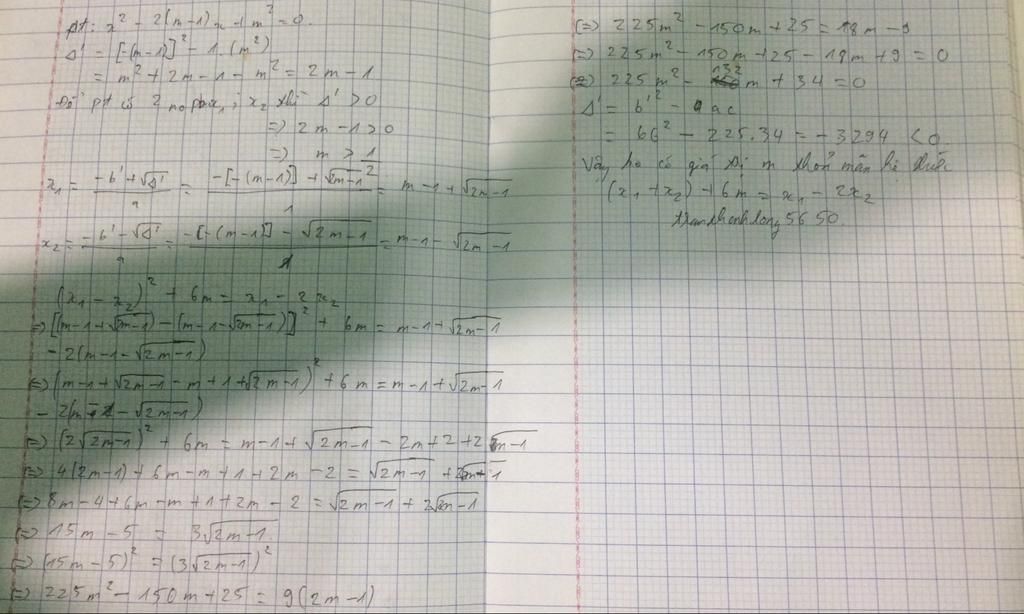 pt: x² - 2(m-1)x + m² = 0.
Δ' = [-(m-1)]² - 1.(m²)
= m² + 2m - 1 - m² = 2m - 1
Để pt có 2 no pb x₁; x₂ thì Δ' > 0
=> 2m - 1 > 0
=> m > 1/2
x₁ = (-b' + √Δ')/a = (-[-(m-1)] + √(2m-1))/1 = m - 1 + √(2m-1)
x₂ = (-b' - √Δ')/a = (-[-(m-1)] - √(2m-1))/1 = m - 1 - √(2m-1)
(x₁ - x₂)² + 6m = x₁ - 2x₂
=> [(m-1+√(2m-1)) - (m-1-√(2m-1))]² + 6m = m-1+√(2m-1)
- 2(m-1-√(2m-1))
(=> (m-1+√(2m-1) - m+1+√(2m-1))² + 6m = m-1+√(2m-1)
- 2(m-1-√(2m-1))
(=> (2√(2m-1))² + 6m = m-1+√(2m-1) - 2m+2+2√(2m-1)
(=> 4(2m-1) + 6m - m + 1 + 2m - 2 = √(2m-1) + 2√(2m-1)
(=> 8m - 4 + 6m - m + 1 + 2m - 2 = √(2m-1) + 2√(2m-1)
(=> 15m - 5 = 3√(2m-1)
(=> (15m-5)² = (3√(2m-1))²
(=> 225m² - 150m + 25 = 9(2m-1)
(=> 225m² - 150m + 25 = 18m - 9
(=> 225m² - 150m + 25 - 18m + 9 = 0
(=> 225m² - 132m + 34 = 0
Δ' = b'² - ac
= 66² - 225.34 = -3294 < 0
Vậy ko có giá trị m thoả mãn hệ thức
(x₁ + x₂) + 6m = x₁ - 2x₂
tranthanhlong5650.